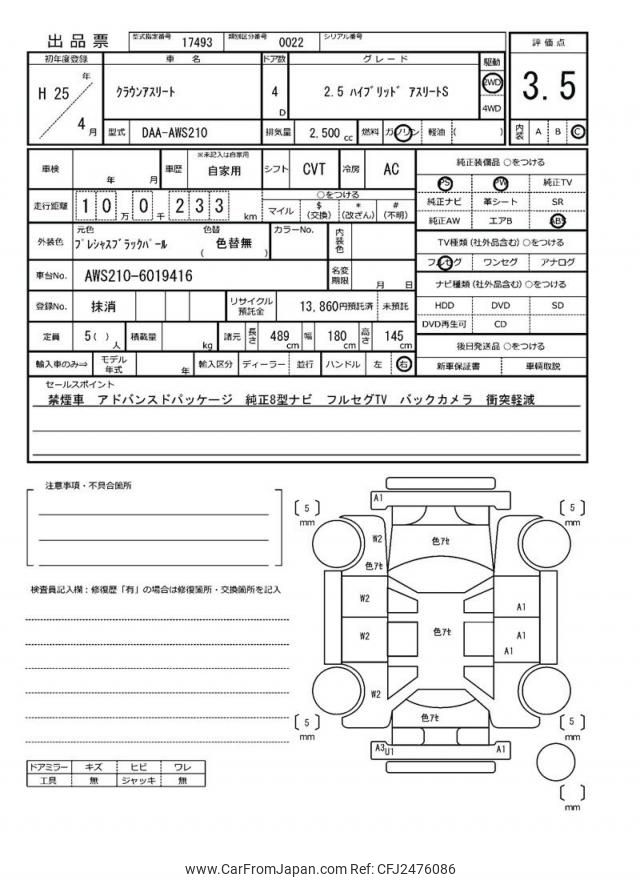 出品票
型式指定番号 17493 類別区分番号 0022 シリアル番号
初年度登録 車名 ドア数 グレード 駆動 評価点
H 25 年 4 月
クラウンアスリート 4 D 2.5 ハイブリッド アスリートS 2WD 4WD
3.5
型式 DAA-AWS210 排気量 2,500 cc 燃料 ガソリン 軽油 ( )
内装 A B C
車検 年 月 車歴 ※未記入は自家用 自家用 シフト CVT 冷房 AC
走行距離 1 0 万 0 千 2 3 3 km
○をつける
マイル $(交換) *(改ざん) #(不明)
外装色 元色 プレシャスブラックパール 色替 ( 色替無 ) カラーNo. 内装色
車台No. AWS210-6019416 名変期限 月 日
登録No. 抹消 リサイクル預託金 13,860円預託済 未預託
定員 5( ) 人 積載量 kg 諸元 長さ 489 cm 幅 180 cm 高さ 145 cm
輸入車のみ⇒ モデル年式 年 輸入区分 ディーラー 並行 ハンドル 左 右
純正装備品 ○をつける
PS PW 純正TV
純正ナビ 革シート SR
純正AW エアB ABS
TV種類(社外品含む)○をつける
フルセグ ワンセグ アナログ
ナビ種類(社外品含む)○をつける
HDD DVD SD
DVD再生可 CD
後日発送品 ○をつける
新車保証書 車輌取説
セールスポイント
禁煙車 アドバンスドパッケージ 純正8型ナビ フルセグTV バックカメラ 衝突軽減
注意事項・不具合箇所
検査員記入欄:修復歴「有」の場合は修復箇所・交換箇所を記入
ドアミラー キズ ヒビ ワレ
工具 無 ジャッキ 無
A1
5 mm
5 mm
W2
色アセ
色アセ
W2
A1
W2
色アセ
A1
A1
W2
色アセ
5 mm
5 mm
A3 U1
A1
mm
www.CarFromJapan.com Ref: CFJ2476086